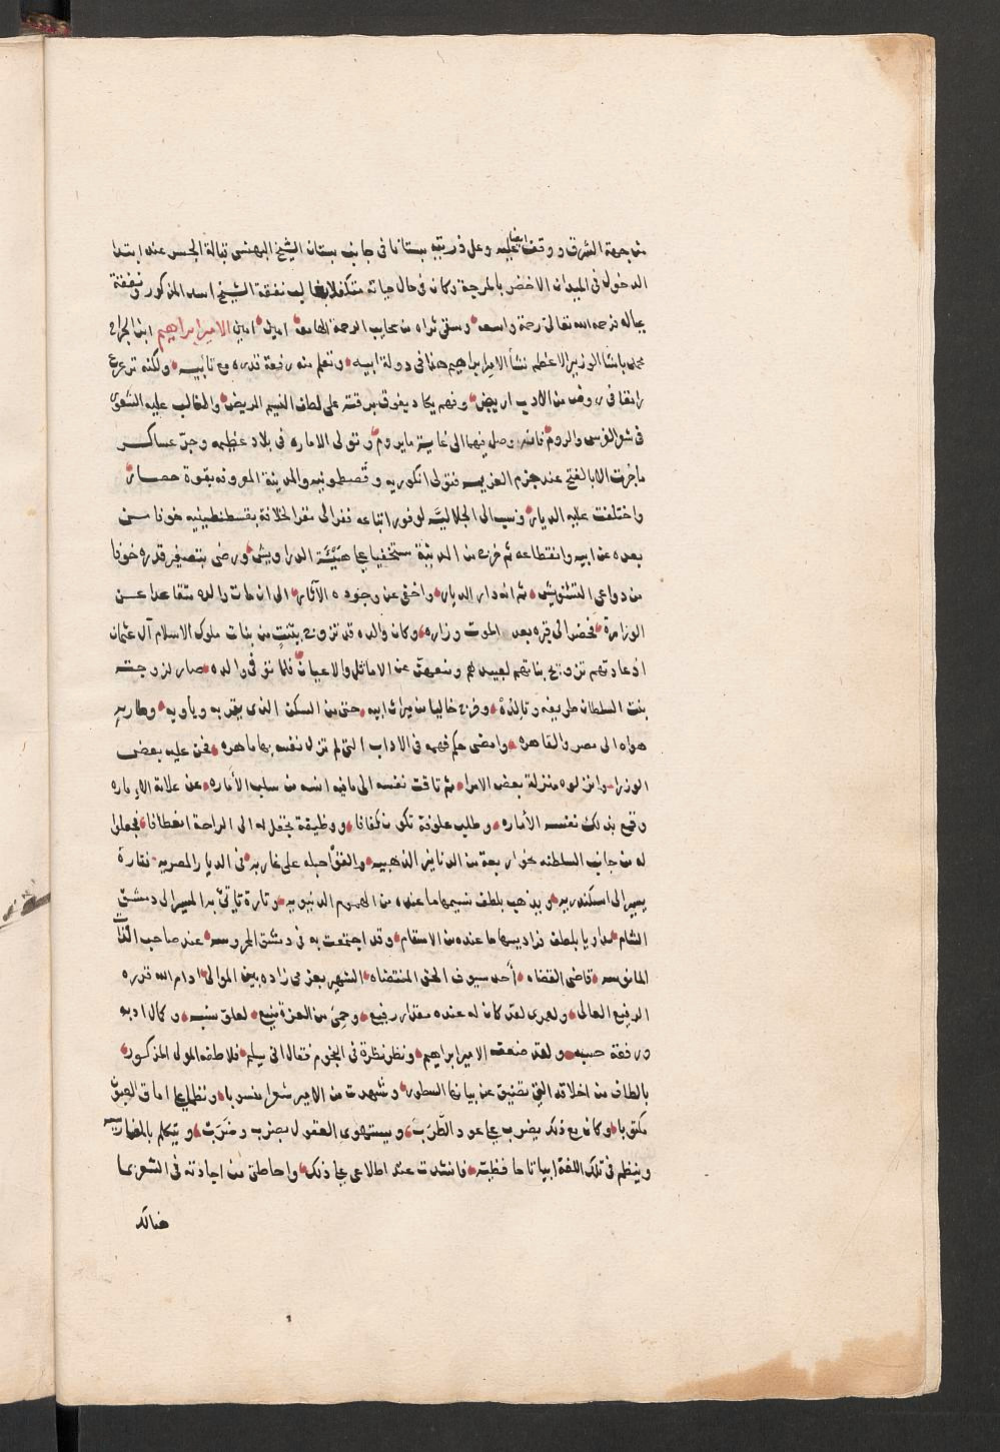 من جهة الشرق ووقف ايضا عليه وعلى ذريته بستانا في جانب بستان الشيخ البهنسي قبالة الجسر عند ابتدا
الدخول في الميدان الاخضر بالمرجة وكان في حال حياته متكفلا بغالب نفقة الشيخ اسد المذكور ونفقة
عياله فرحمه الله تعالى رحمة واسعه وسقى ثراه من سحايب الرحمة الهامعه امين امين الامير ابراهيم ابن الجراح
محمد باشا الوزير الاعظم نشأ الامير ابراهيم هذا في دولة ابيه وتعلم منه رفعة قدره مع تانيه ولكنه ترعرع
راتعا في روض من الادب اريض وفهم يكاد يفوق برقته على لطف النسيم المريض والغالب عليه الشعر
في شعر الفرس والروم فانه وصل فيهما الى غاية ما يروم وتولى الاماره في بلاد عظيمه وجر عساكر
ما جرت الا بالفتح عند جزم العزيمه فتولى انكوريه وقسطمونيه والمدينة المعروفه بقوة حصار
واختلفت عليه الديار ونسب الى الجلاليه لوفور اتباعه ففر الى مقر الخلافة بقسطنطينيه خوفا من
بعده عن ابيه وانقطاعه ثم خرج من المدينة مستخفيا على هيئة الدراويش ورضي بتصغير قدره خوفا
من دواعي التشويش ثم انه دار الديار واخفى عن وجوده الآثار الى ان مات والده متقاعدا عن
الوزارة فحضر الى قبره بعد الموت وزاره وكان والده قد تزوج ببنت من بنات ملوك الاسلام آل عثمان
اذ عادتهم تزويج بناتهم لعبيدهم ومنعهن عن الاماثل والاعيان فلما توفي والده صار لزوجته
بنت السلطان طريفه وتالده وخرج خاليا من ميراث ابيه حتى من السكن الذي يقر به وياويه وطار به
هواه الى مصر والقاهره وامضى حكم فهمه في الاداب التي لم تزل نفسه بها ماهره فحن عليه بعض
الوزرا وانزلوه منزلة بعض الامرا ثم تاقت نفسه الى ما فيه امنه من سلب الأماره عن علامة الاماره
وقنع بذلك نفسه الأماره وطلب علوفة تكون كفافا ووظيفة يجعل له الى الراحة انعطافا فجعلوا
له من جانب السلطنه نحو اربعة من الدنانير الذهبيه والقوا حبله على غاربه في الديار المصريه فتارة
يسير الى اسكندريه ويذهب بلطف نسيمها ما عنده من الهموم الدنيويه وتارة ياتي به المسير الى دمشق
الشام مداويا بلطف نواديها ما عنده من الاسقام وقد اجتمعت به في دمشق المحروسه عند صاحب الذات
المانوسه قاضي القضاه أحد سيوف الحق المنتضاه الشهير بعزمي زاده بين الموالي ادام الله قدره
الرفيع العالي ولعمري لقد كان له عنده مقدار رفيع وحمى من العزة منيع لعلو نسبه وكمال ادبه
ورفعة حسبه ولقد ضعف الامير ابراهيم ونظر نظرة في النجوم فقال اني سقيم فلاطفه المولى المذكور
بالطاف من اخلاقه التي تضيق عن بيانها السطور وشهدت من الامير شعرا منسوبا ونظما على اماق العيون
مكتوبا وكان مع ذلك يضرب على عود الطرب ويستهوي العقول بضرب وضرب ويتكلم بالفارسيه
وينظم في تلك اللغة ابياتا حافظيه فانشدت عند اطلاعي على ذلك واحاطتي من اجادته في الشعر بما
هنالك